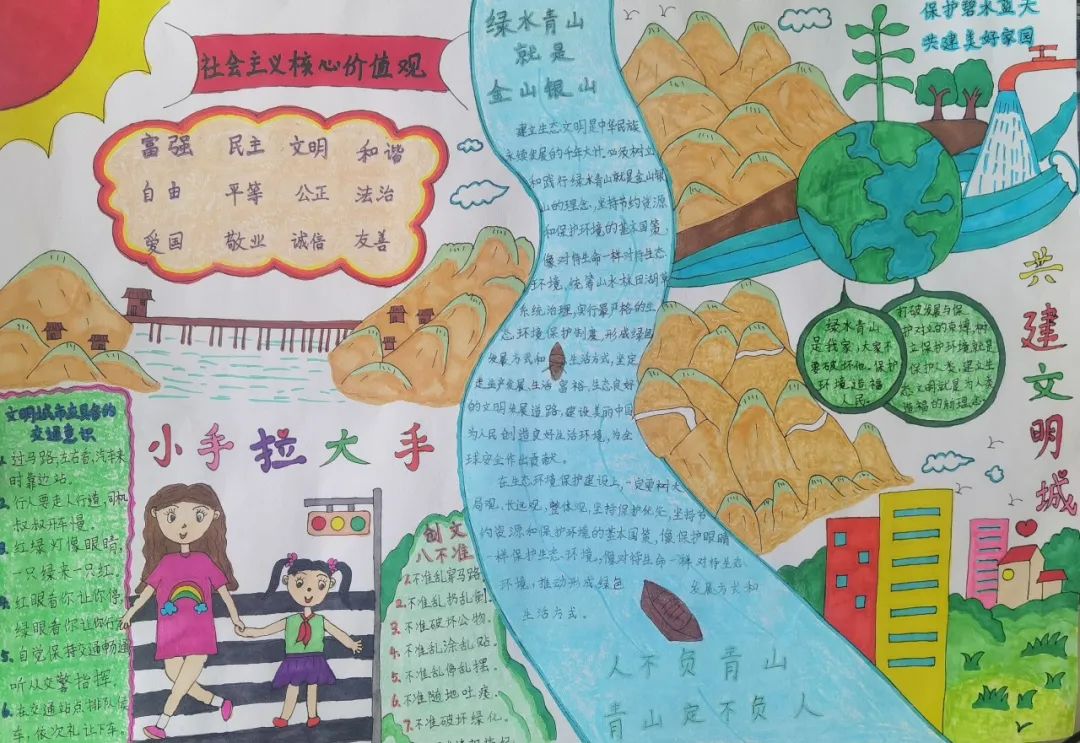 社会主义核心价值观
富强 民主 文明 和谐
自由 平等 公正 法治
爱国 敬业 诚信 友善
绿水青山
就是
金山银山
建立生态文明是中华民族
永续发展的千年大计,必须树立
和践行绿水青山就是金山银
山的理念,坚持节约资源
和保护环境的基本国策,
像对待生命一样对待生态
环境,统筹山水林田湖草
系统治理,实行最严格的生
态环境保护制度,形成绿色
发展方式和生活方式,坚定
走生产发展,生活富裕,生态良好
的文明发展道路,建设美丽中国,
为人民创造良好生活环境,为全
球安全作出贡献。
在生态环境保护建设上,一定要树大
局观,长远观,整体观,坚持保护优先,坚持节
约资源和保护环境的基本国策,像保护眼睛
一样保护生态环境,像对待生命一样对待生态
环境,推动形成绿色发展方式和
生活方式。
人不负青山
青山定不负人
保护碧水蓝天
共建美好家园
绿水青山
是我家,大家不
要破坏他。保护
环境造福
人民。
打破发展与保
护对立的束缚,树
立保护环境就是
保护人类,建立生
态文明就是为人类
造福的新理念。
共建文明城
小手拉大手
文明城市应具备的
交通意识
1.过马路,左右看,汽车来
时靠边站。
2.行人要走人行道,司机
叔叔开车慢。
3.红绿灯像眼睛,
一只绿来一只红。
4.红眼看你让你停,
绿眼看你让你行
5.自觉保持交通畅通
听从交警指挥
6.在交通站点排队候
车,依次礼让下车。
创文
八不准
1.不准乱穿马路
2.不准乱扔乱倒。
3.不准破坏公物。
4.不准乱涂乱贴。
5.不准乱停乱摆。
6.不准随地吐痰。
7.不准破坏绿化。